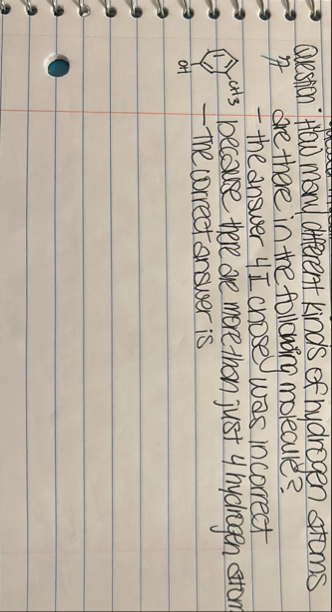 Question: How many different kinds of hydrogen atoms
are there in the following molecule?
- the answer 4 I chose was incorrect
because there are more than just 4 hydrogen atom
CH3
OH
- The correct answer is